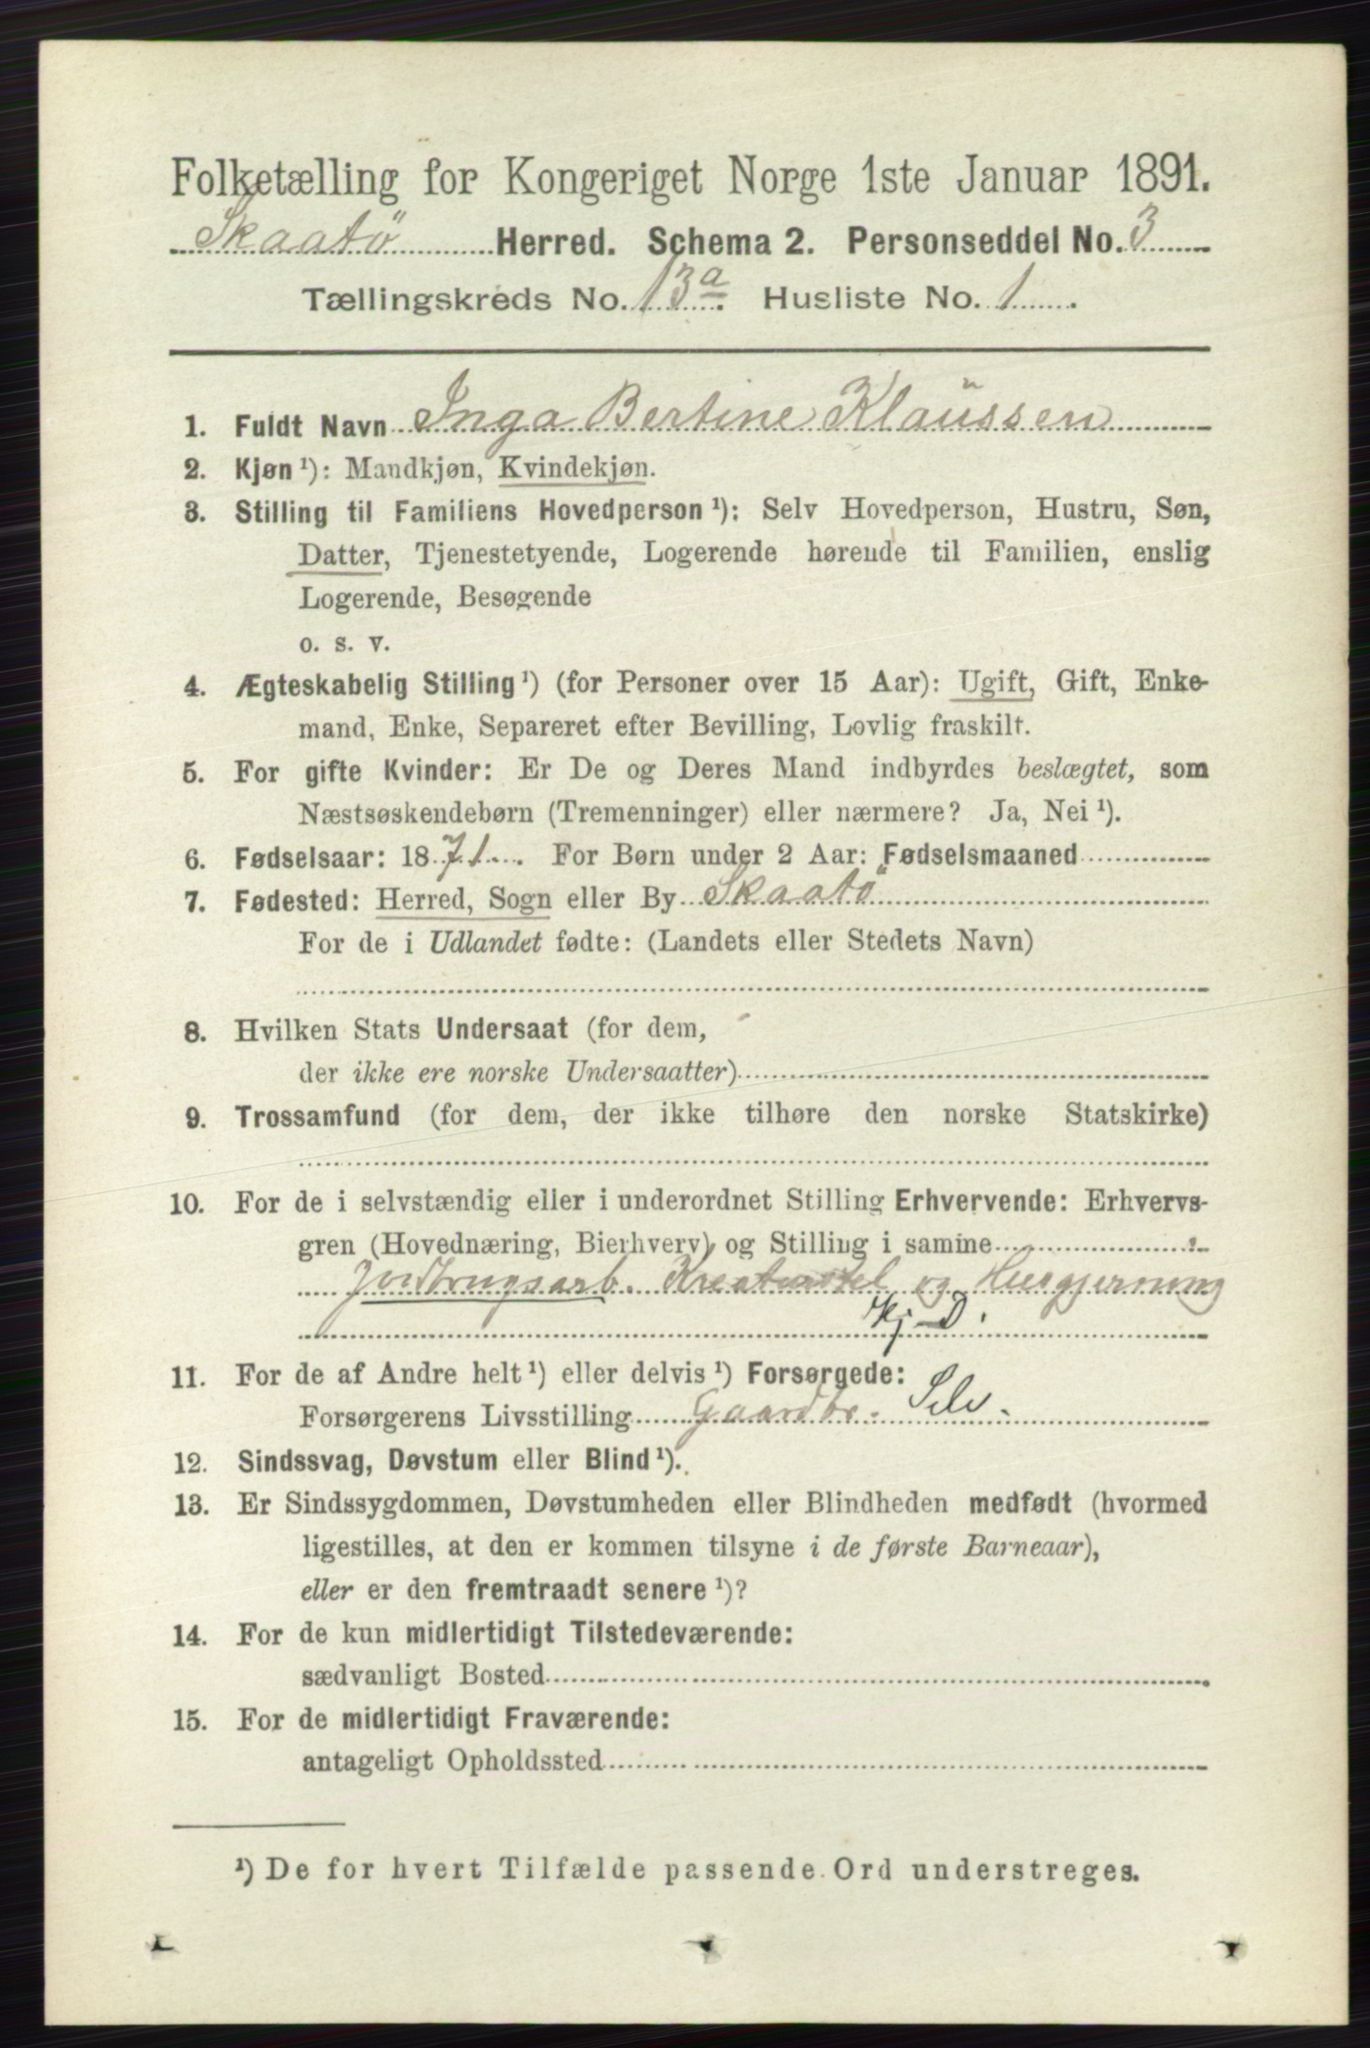 Folketælling for Kongeriget Norge 1ste Januar 1891.
Skaatö Herred. Schema 2. Personseddel No. 3
Tællingskreds No. 13a. Husliste No. 1.
1. Fuldt Navn Inga Bertine Klaüssen
2. Kjøn ¹): Mandkjøn, Kvindekjøn.
3. Stilling til Familiens Hovedperson ¹): Selv Hovedperson, Hustru, Søn,
Datter, Tjenestetyende, Logerende hørende til Familien, enslig
Logerende, Besøgende
o. s. v.
4. Ægteskabelig Stilling ¹) (for Personer over 15 Aar): Ugift, Gift, Enke-
mand, Enke, Separeret efter Bevilling, Lovlig fraskilt.
5. For gifte Kvinder: Er De og Deres Mand indbyrdes beslægtet, som
Næstsøskendebørn (Tremenninger) eller nærmere? Ja, Nei ¹).
6. Fødselsaar: 1871. For Børn under 2 Aar: Fødselsmaaned
7. Fødested: Herred, Sogn eller By Skaatö
For de i Udlandet fødte: (Landets eller Stedets Navn)
8. Hvilken Stats Undersaat (for dem,
der ikke ere norske Undersaatter)
9. Trossamfund (for dem, der ikke tilhøre den norske Statskirke)
10. For de i selvstændig eller i underordnet Stilling Erhvervende: Erhvervs-
gren (Hovednæring, Bierhverv) og Stilling i samme
Jordbrugsarb. Kreaturstel og Husgjerning
Kj. D.
11. For de af Andre helt ¹) eller delvis ¹) Forsørgede:
Forsørgerens Livsstilling Gaardbr. Selv.
12. Sindssvag, Døvstum eller Blind ¹).
13. Er Sindssygdommen, Døvstumheden eller Blindheden medfødt (hvormed
ligestilles, at den er kommen tilsyne i de første Barneaar),
eller er den fremtraadt senere ¹)?
14. For de kun midlertidigt Tilstedeværende:
sædvanligt Bosted
15. For de midlertidigt Fraværende:
antageligt Opholdssted
¹) De for hvert Tilfælde passende Ord understreges.